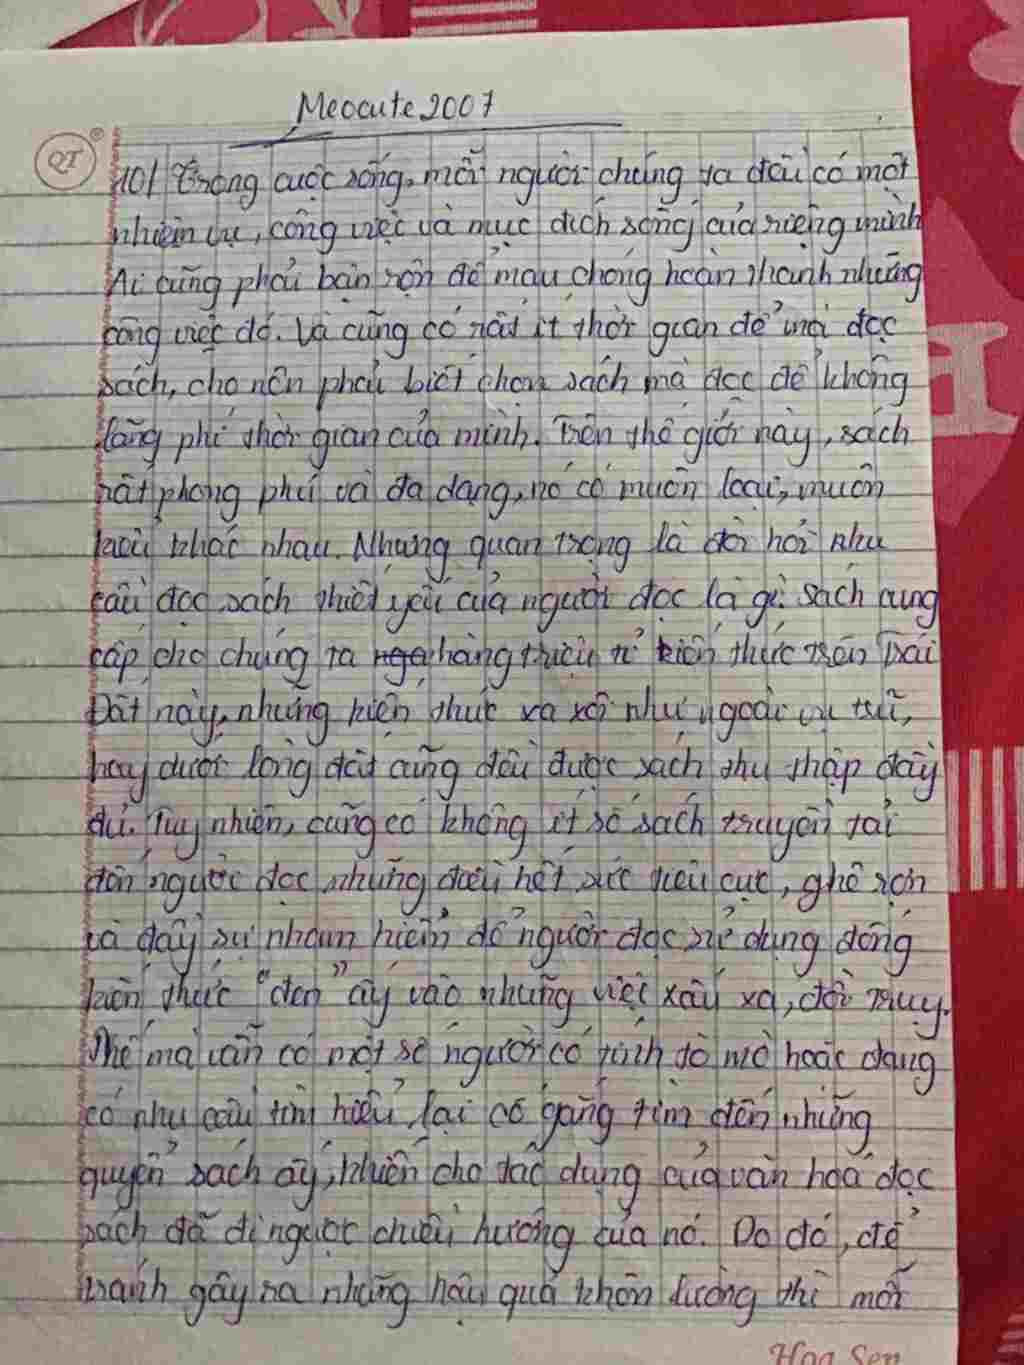 Meocute2007
QT
10/ Trong cuộc sống, mỗi người chúng ta đều có một
nhiệm vụ, công việc và mục đích sống của riêng mình
Ai cũng phải bận rộn để mau chóng hoàn thành những
công việc đó. Và cũng có rất ít thời gian để mà đọc
sách, cho nên phải biết chọn sách mà đọc để không
lãng phí thời gian của mình. Trên thế giới này, sách
rất phong phú và đa dạng, nó có muôn loại, muôn
kiểu khác nhau. Nhưng quan trọng là đòi hỏi nhu
cầu đọc sách thiết yếu của người đọc là gì. Sách cung
cấp cho chúng ta hàng triệu tỉ kiến thức trên Trái
Đất này, những kiến thức xa xôi như ngoài vũ trũ,
hay dưới lòng đất cũng đều được sách thu thập đầy
đủ. Tuy nhiên, cũng có không ít số sách truyền tải
đến người đọc những điều hết sức tiêu cực, ghê rợn
và đầy sự nham hiểm để người đọc sử dụng đống
kiến thức "đen" ấy vào những việc xấu xa, đồi truỵ.
Thế mà vẫn có một số người có tính tò mò hoặc đang
có nhu cầu tìm hiểu lại cố gắng tìm đến những
quyển sách ấy, khiến cho tác dụng của văn hoá đọc
sách đã đi ngược chiều hướng của nó. Do đó, để
tránh gây ra những hậu quả khôn lường thì mỗi
Hoa Sen